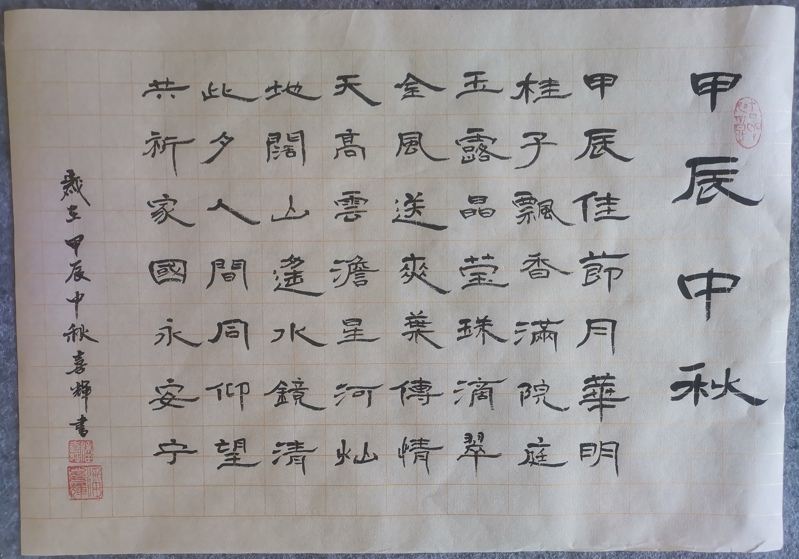 甲辰中秋
甲辰佳節月華明
桂子飄香滿院庭
玉露晶莹珠滴翠
金風送爽葉傳情
天高雲澹星河灿
地闊山遙水鏡清
此夕人間同仰望
共祈家國永安宁
歲在甲辰中秋喜輝書